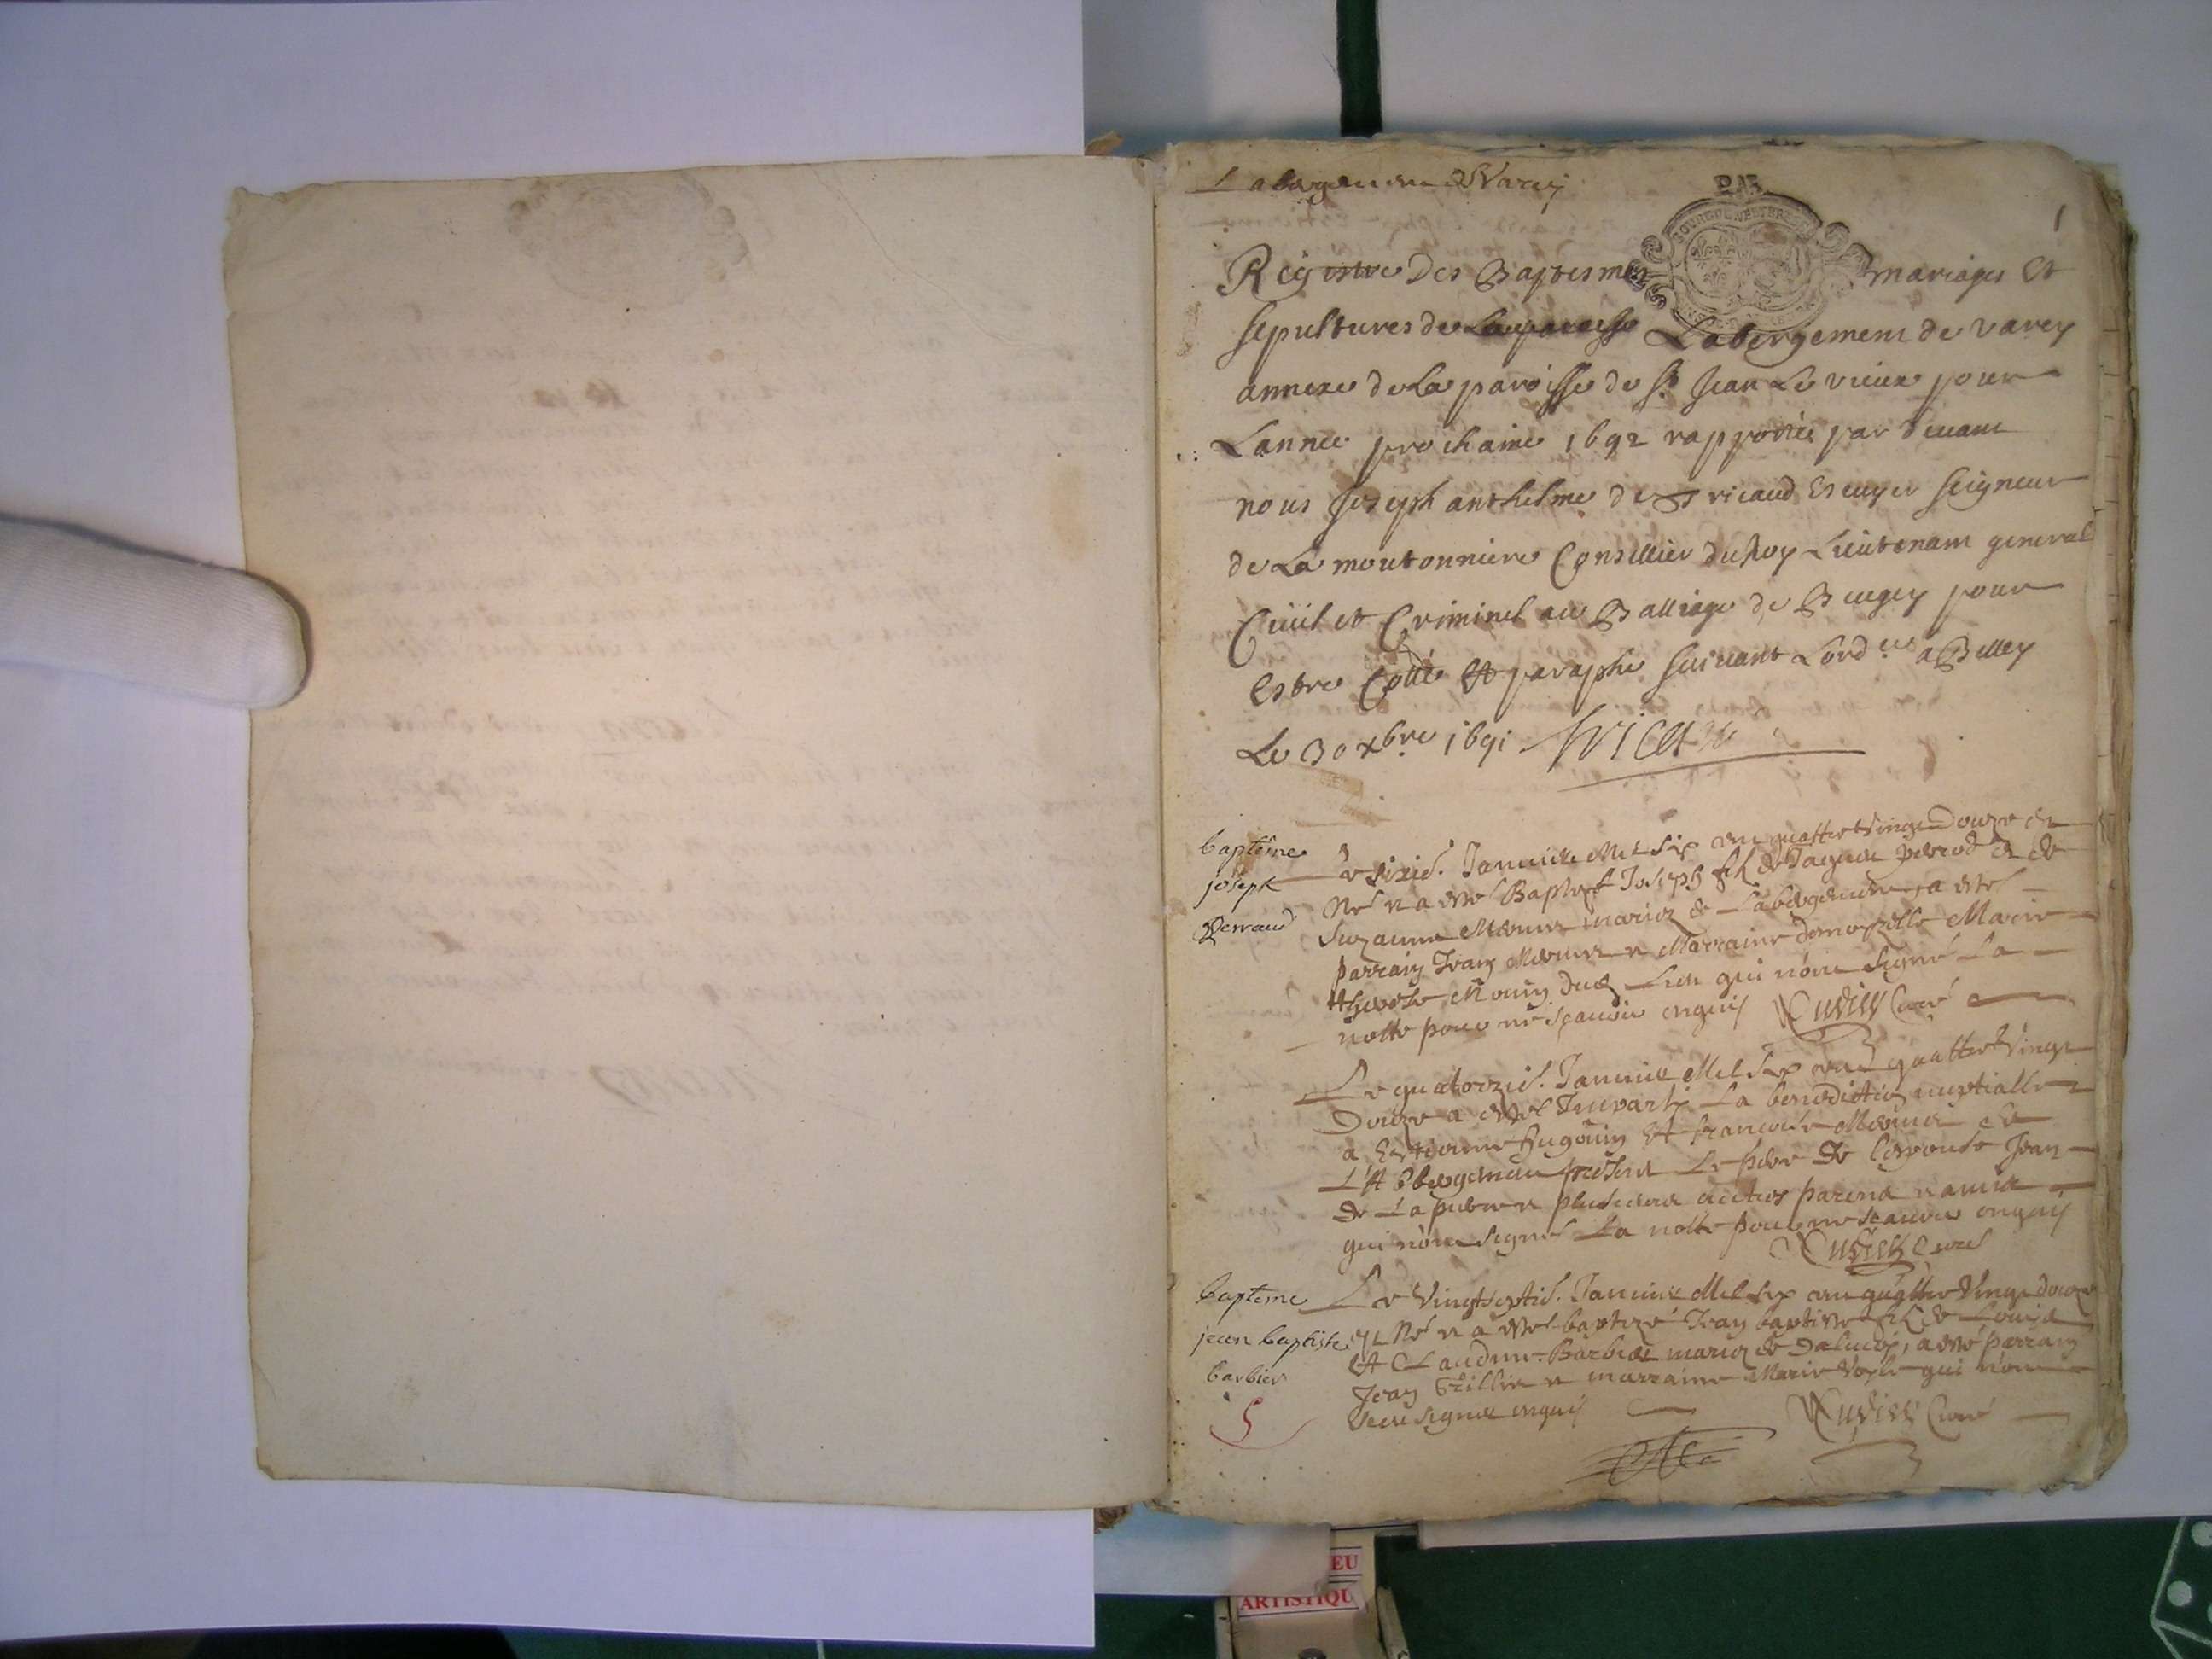 Labergement de Varey
1
Registre Des Baptesmes mariages Et
sepultures de Laparoisse Labergement de varey
annexe de La paroisse de St Jean Le vieux pour
Lannee prochaine 1692 rapporté par devant
nous Joseph anthelme de Tricaud Escuyer seigneur
de La moutonniere Conseillier du Roy Lieutenant general
Ciuil et Criminel au Balliage de Beugey pour
Estre Cotté et paraphé suiuant Lord.ce a Belley
Le 30 xbre 1691 Tricaud
baptême
joseph
Perraud
Le sixie. Januier Mil six cen quattre Vingt Douze est
Né et a esté Baptisé Joseph fils de Jaques perrod et de
Suzanne mariez de Labergement, a esté
parrain Jean et Marraine demoyselle Marie
dud. Lieu qui n'ont signé La
notte pour ne sçauoir enquis Curé
Le quatorzie. Januier Mil six cen quattre Vingt
Douze a esté Imparty La benediction nuptialle
a Estienne hugonin et francoise de
L'Abbergement present Le pere De Lepouse Jean
De La et plusieurs autres parens et amis
qui n'ont signé La notte pour ne scauoir enquis
Curé
baptême
jean baptiste
barbier
Le Vingt septie. Januier Mil six cen quattre Vingt douze
est Né et a esté baptizé Jean baptiste fils de Louis
et Claudine Barbier mariez de a esté parrain
Jean et marraine Marie qui n'ont
sceu signer enquis Curé
5
EU
ARTISTIQU